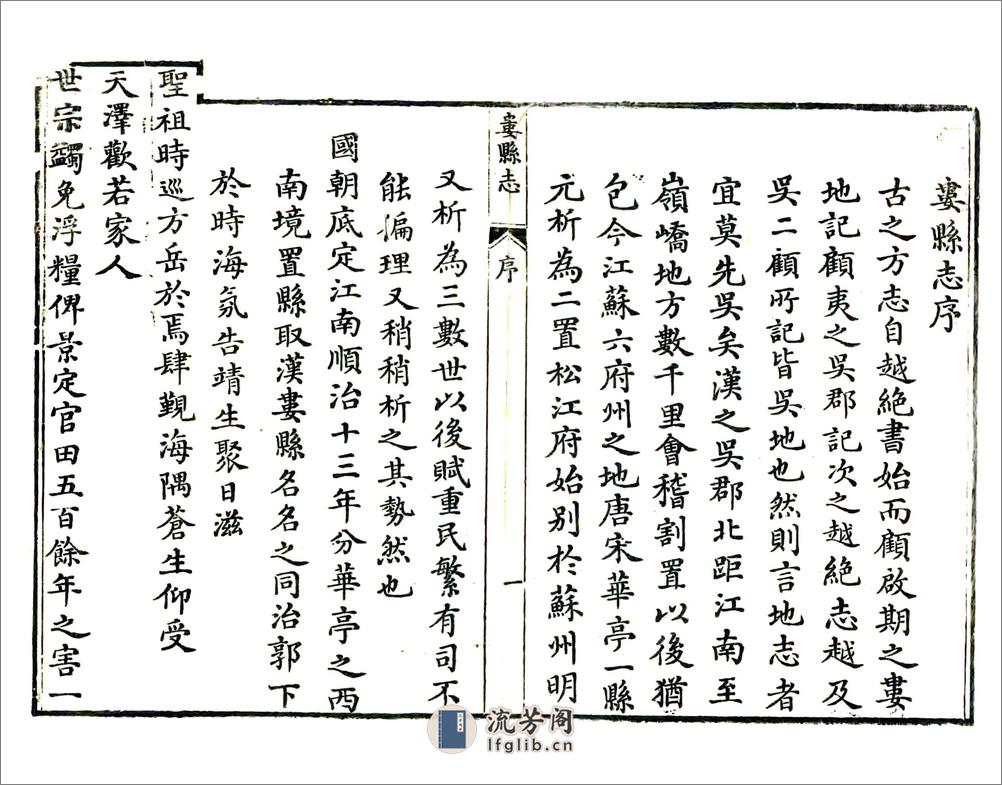 婁縣志序
古之方志自越絶書始而顧啟期之婁
地記顧夷之吳郡記次之越絶志越及
吳二顧所記皆吳地也然則言地志者
宜莫先吳矣漢之吳郡北距江南至
嶺嶠地方數千里會稽割置以後猶
包今江蘇六府州之地唐宋華亭一縣
元析為二置松江府始別於蘇州明
婁縣志
序
一
又析為三數世以後賦重民繁有司不
能徧理又稍稍析之其勢然也
國朝底定江南順治十三年分華亭之西
南境置縣取漢婁縣名名之同治郭下
於時海氛告靖生聚日滋
聖祖時巡方岳於焉肆覲海隅蒼生仰受
天澤歡若家人
世宗蠲免浮糧俾景定官田五百餘年之害一
流芳阁
lfglib.cn